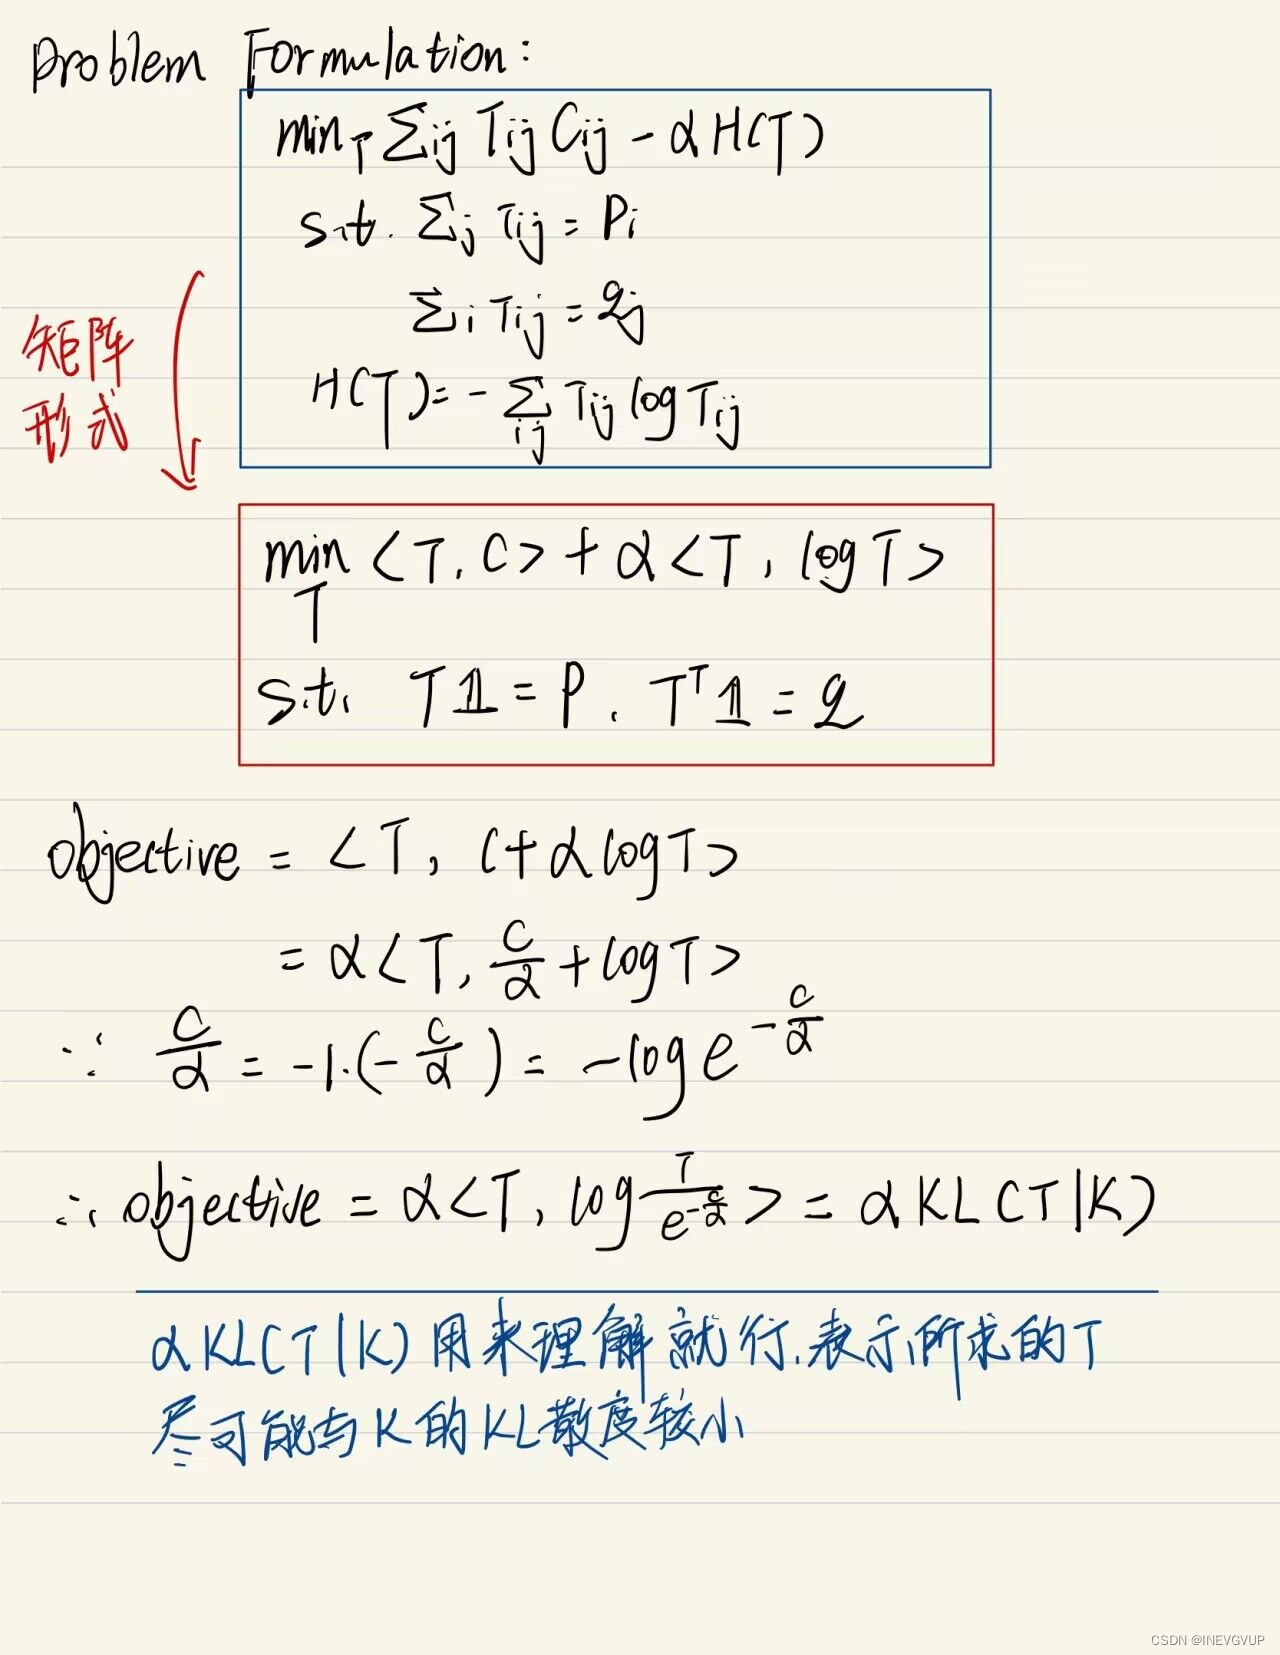 Problem Formulation:
min_T Σ_ij T_ij C_ij - αH(T)
s.t. Σ_j T_ij = P_i
Σ_i T_ij = q_j
H(T) = - Σ_ij T_ij log T_ij
矩阵
形式
min_T <T, C> + α<T, log T>
s.t. T𝟙 = P. T^T 𝟙 = q
objective = <T, C+αlogT>
= α<T, C/α + logT>
∵ C/α = -1·(-C/α) = -log e^{-C/α}
∴ objective = α<T, log T/e^{-C/α}> = αKL(T|K)
αKL(T|K)用来理解就行,表示所求的T
尽可能与K的KL散度较小
CSDN @INEVGVUP